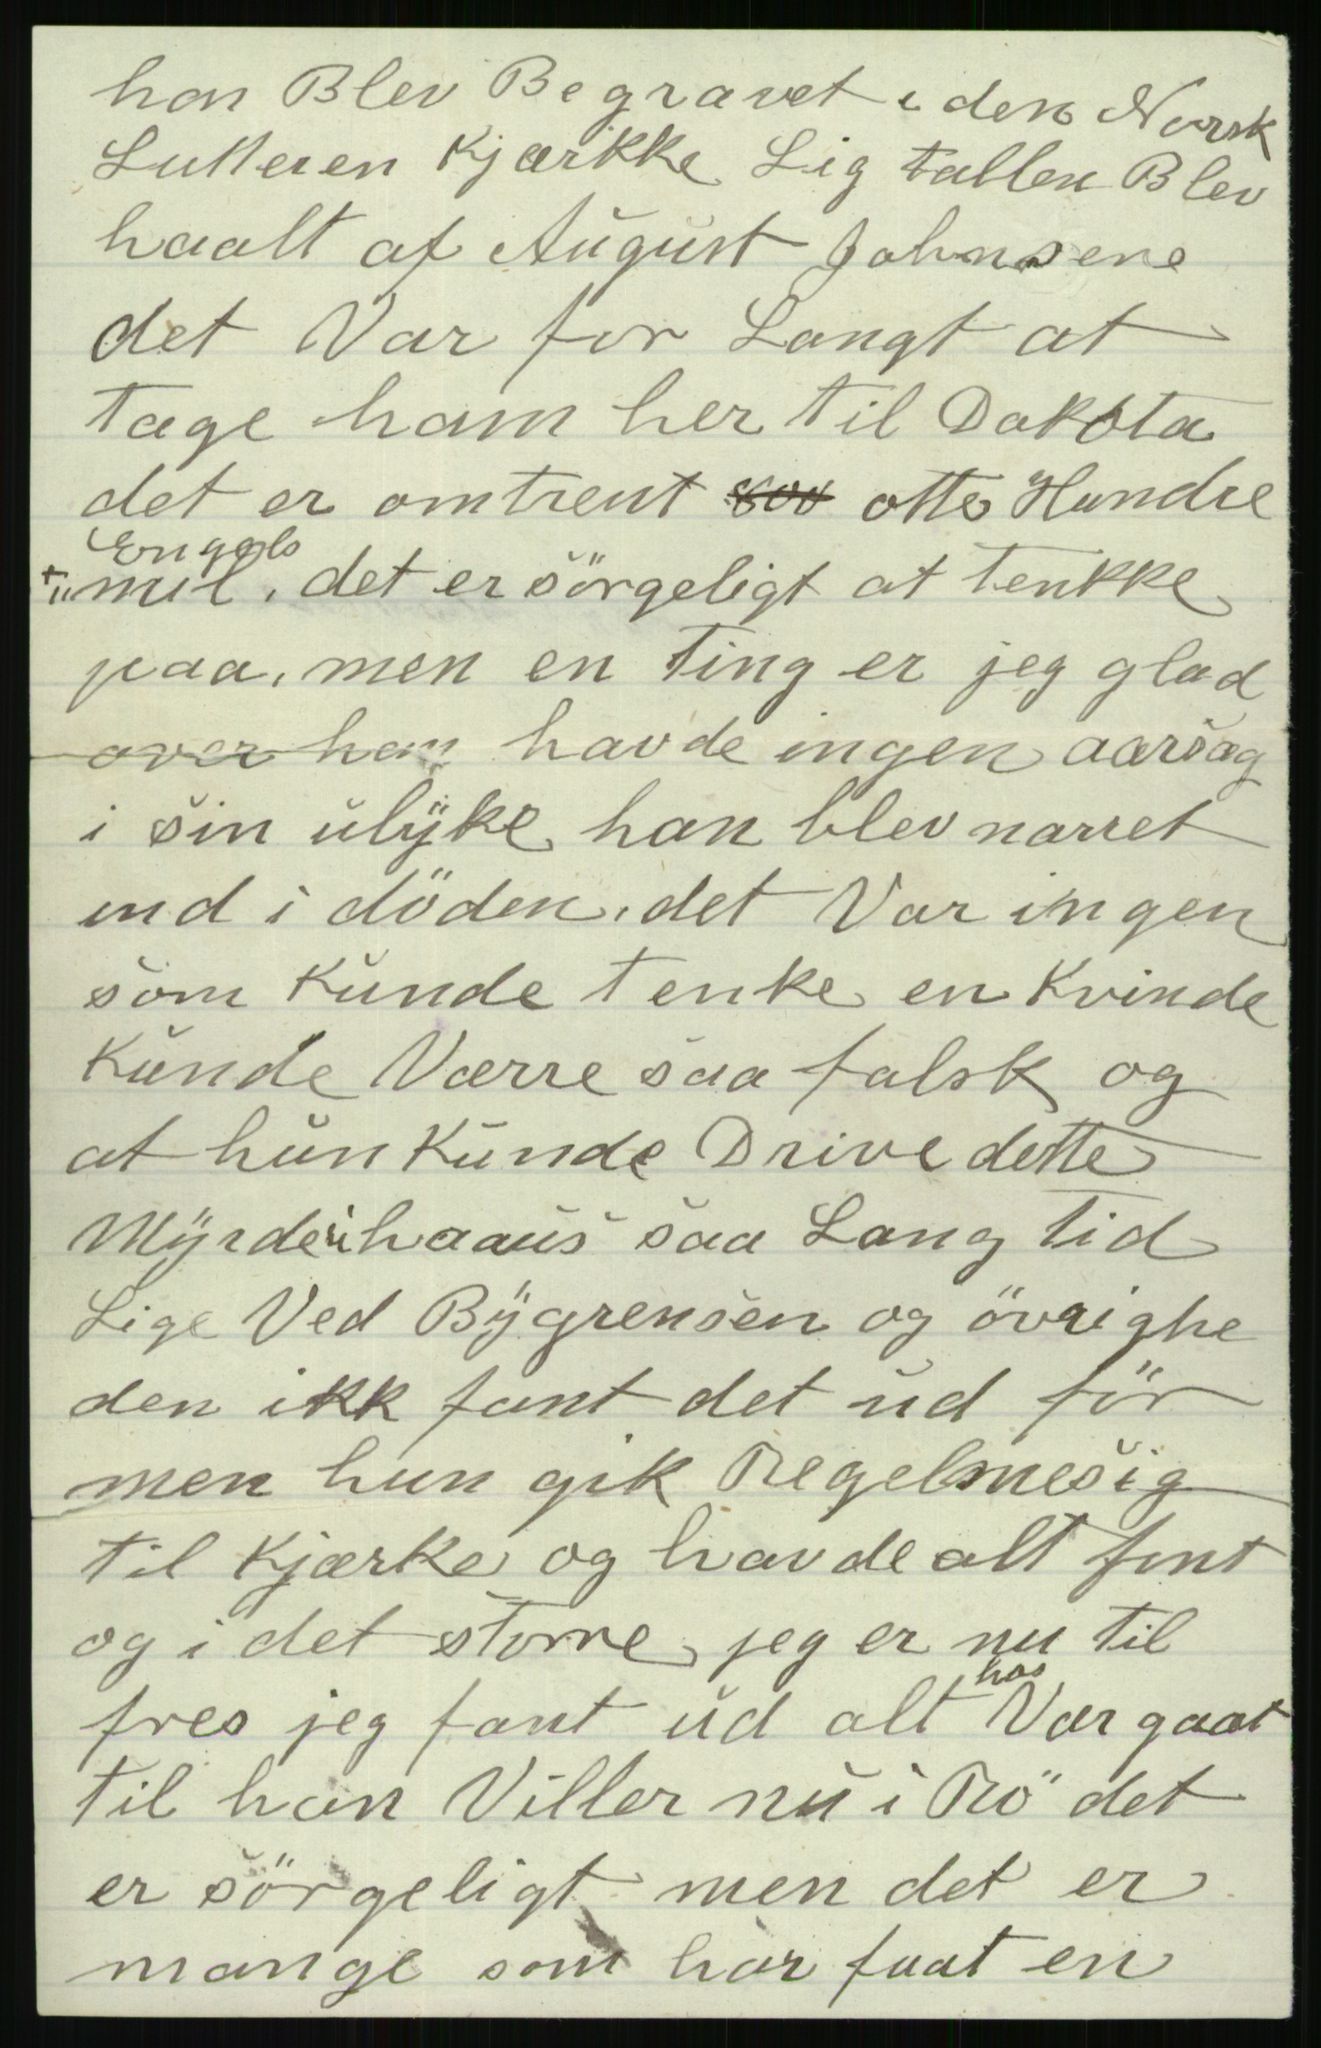 han Blev Begravet i den Norsk
Lutteren Kjærkke Lig tallen Blev
haalt af August Johnsene
det Var for Langt at
tage ham her til Dakota
det er omtrent 800 otte Hundre
Engels
mil. det er sörgeligt at tenkke
paa. men en Ting er jeg glad
over han havde ingen aarsag
i sin ulÿke han blev narret
ind i döden. det Var ingen
som Kunde tenke en Kvinde
Kunde Værre saa falsk og
at hun Kunde Drive dette
Mÿrderhaaus saa Lang tid
Lige Ved Bÿgrensen og övrighe
den ikk fant det ud för
men hun gik Regelmesig
til Kjærke og havde alt fint
og i det storre jeg er nu til
fres jeg fant ud alt Var gaat
hos
til han Viller nu i Rö det
er sörgeligt men det er
mange som har faat en